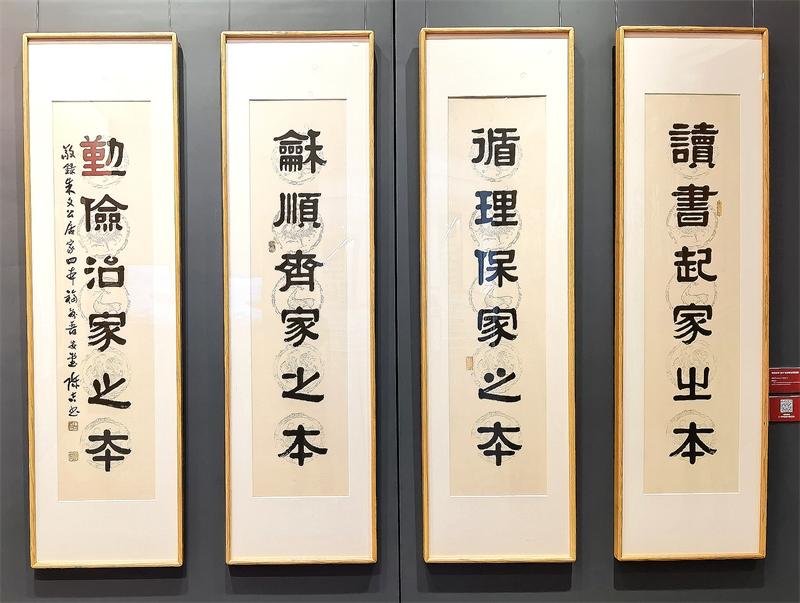 讀書起家之本
循理保家之本
龢順齊家之本
勤儉治家之本
敬錄朱文公居家四本